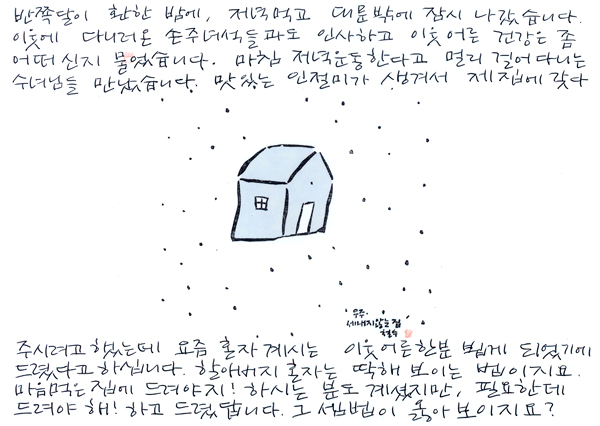 반쪽달이 환한 밤에, 저녁먹고 대문밖에 잠시 나갔습니다.
이웃에 다니러온 손주녀석들과도 인사하고 이웃어른 건강은 좀
어떠신지 물었습니다. 마침 저녁운동한다고 멀리 걸어다니는
수녀님들 만났습니다. 맛있는 인절미가 생겨서 제집에 갖다
우주.
세내지않는 집
철수
주시려고했는데 요즘 혼자 계시는 이웃어른한분 뵙게 되었기에
드렸다고하십니다. 할아버지 혼자는 딱해 보이는 법이지요.
마음먹은 집에 드려야지! 하시는 분도 계셨지만, 필요한데
드려야 해! 하고 드렸답니다. 그 셈법이 옳아 보이지요?